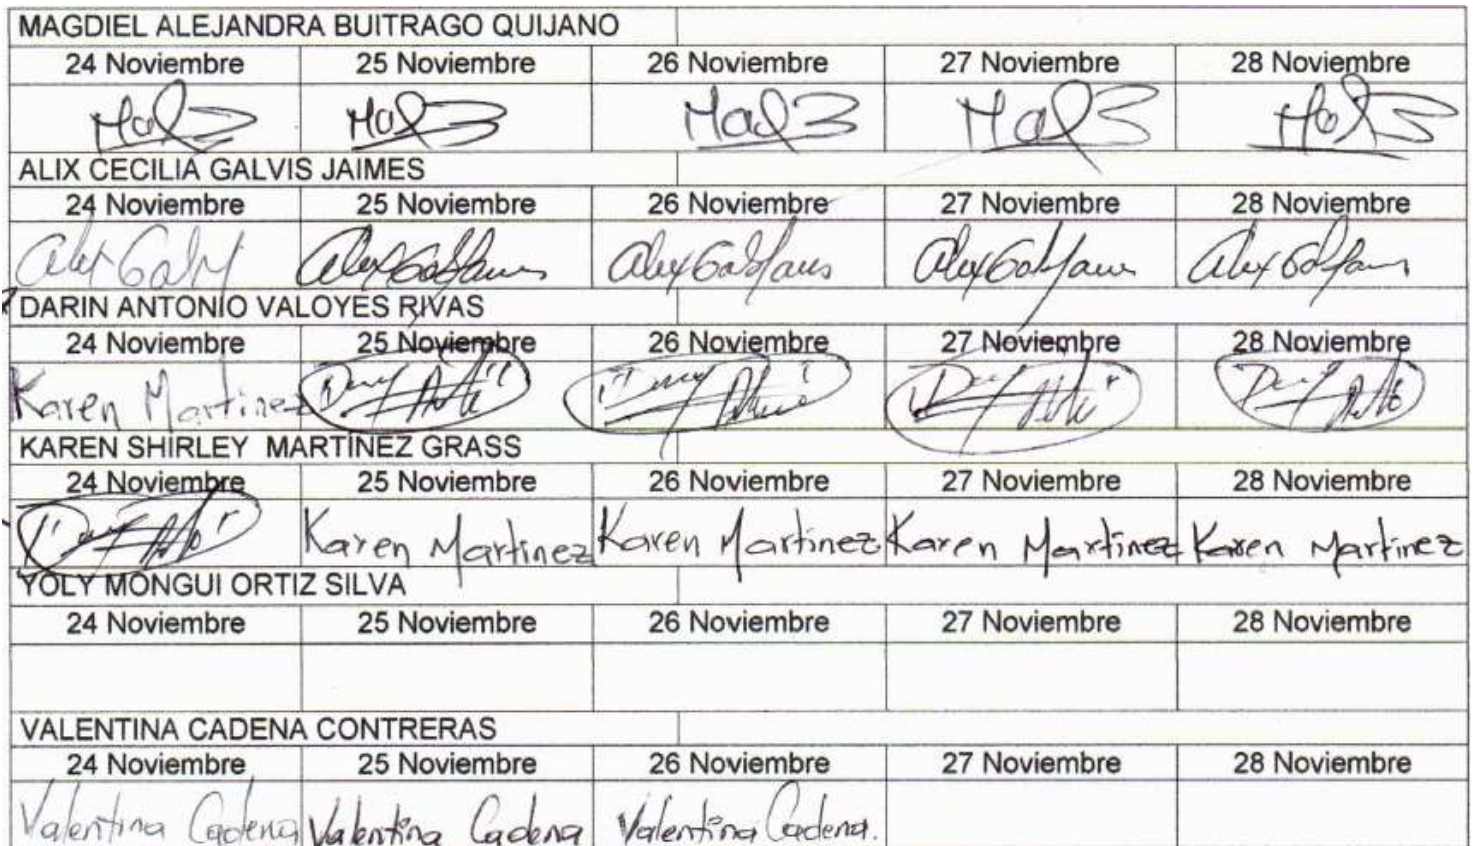 MAGDIEL ALEJANDRA BUITRAGO QUIJANO
24 Noviembre 25 Noviembre 26 Noviembre 27 Noviembre 28 Noviembre
ALIX CECILIA GALVIS JAIMES
24 Noviembre 25 Noviembre 26 Noviembre 27 Noviembre 28 Noviembre
DARIN ANTONIO VALOYES RIVAS
24 Noviembre 25 Noviembre 26 Noviembre 27 Noviembre 28 Noviembre
Karen Martinez
KAREN SHIRLEY MARTÍNEZ GRASS
24 Noviembre 25 Noviembre 26 Noviembre 27 Noviembre 28 Noviembre
Karen Martinez Karen Martinez Karen Martinez Karen Martinez
YOLY MONGUI ORTIZ SILVA
24 Noviembre 25 Noviembre 26 Noviembre 27 Noviembre 28 Noviembre
VALENTINA CADENA CONTRERAS
24 Noviembre 25 Noviembre 26 Noviembre 27 Noviembre 28 Noviembre
Valentina Cadena Valentina Cadena Valentina Cadena.